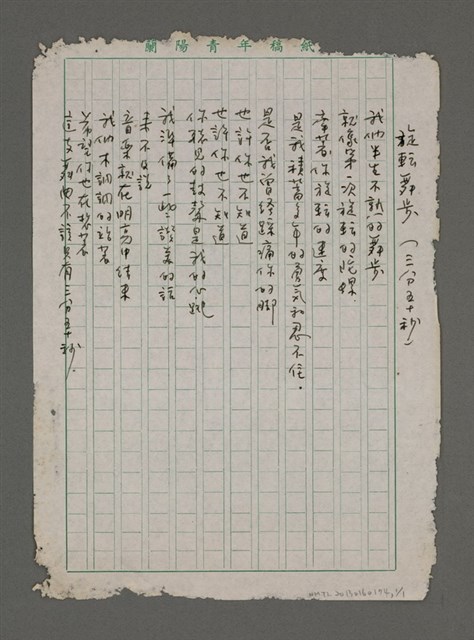 蘭陽青年稿紙
旋転舞步 (三分五十秒)
我們半生不熟的舞步
就像第一次旋転的陀螺.
牽著你旋転的速度
是我積蓄多年的勇気和忍不住.
是否我曾経踩痛你的脚
也許你也不知道
也許你也不知道
你聴見的鼓聲是我的心跳
我準備了一些讚美的話
来不及說
音楽就在明亮中結束
我們木訥的站著
希望你也在
這支舞曲不該只有三分五十秒.
NMTL 20130160194, 1/1